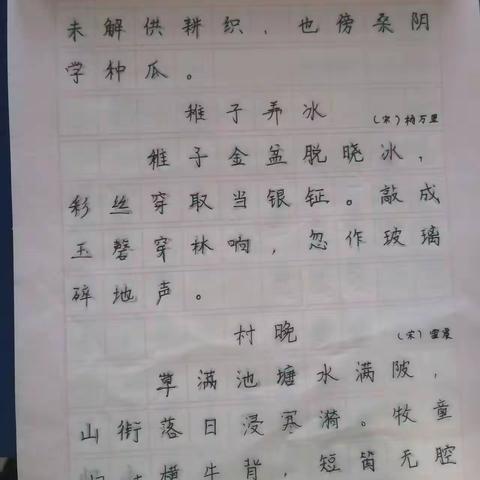 未解供耕织，也傍桑阴
学种瓜。
稚子弄冰 （宋）杨万里
稚子金盆脱晓冰，
彩丝穿取当银钲。敲成
玉磬穿林响，忽作玻璃
碎地声。
村晚 （宋）雷震
草满池塘水满陂，
山衔落日浸寒漪。牧童
横牛背，短笛无腔